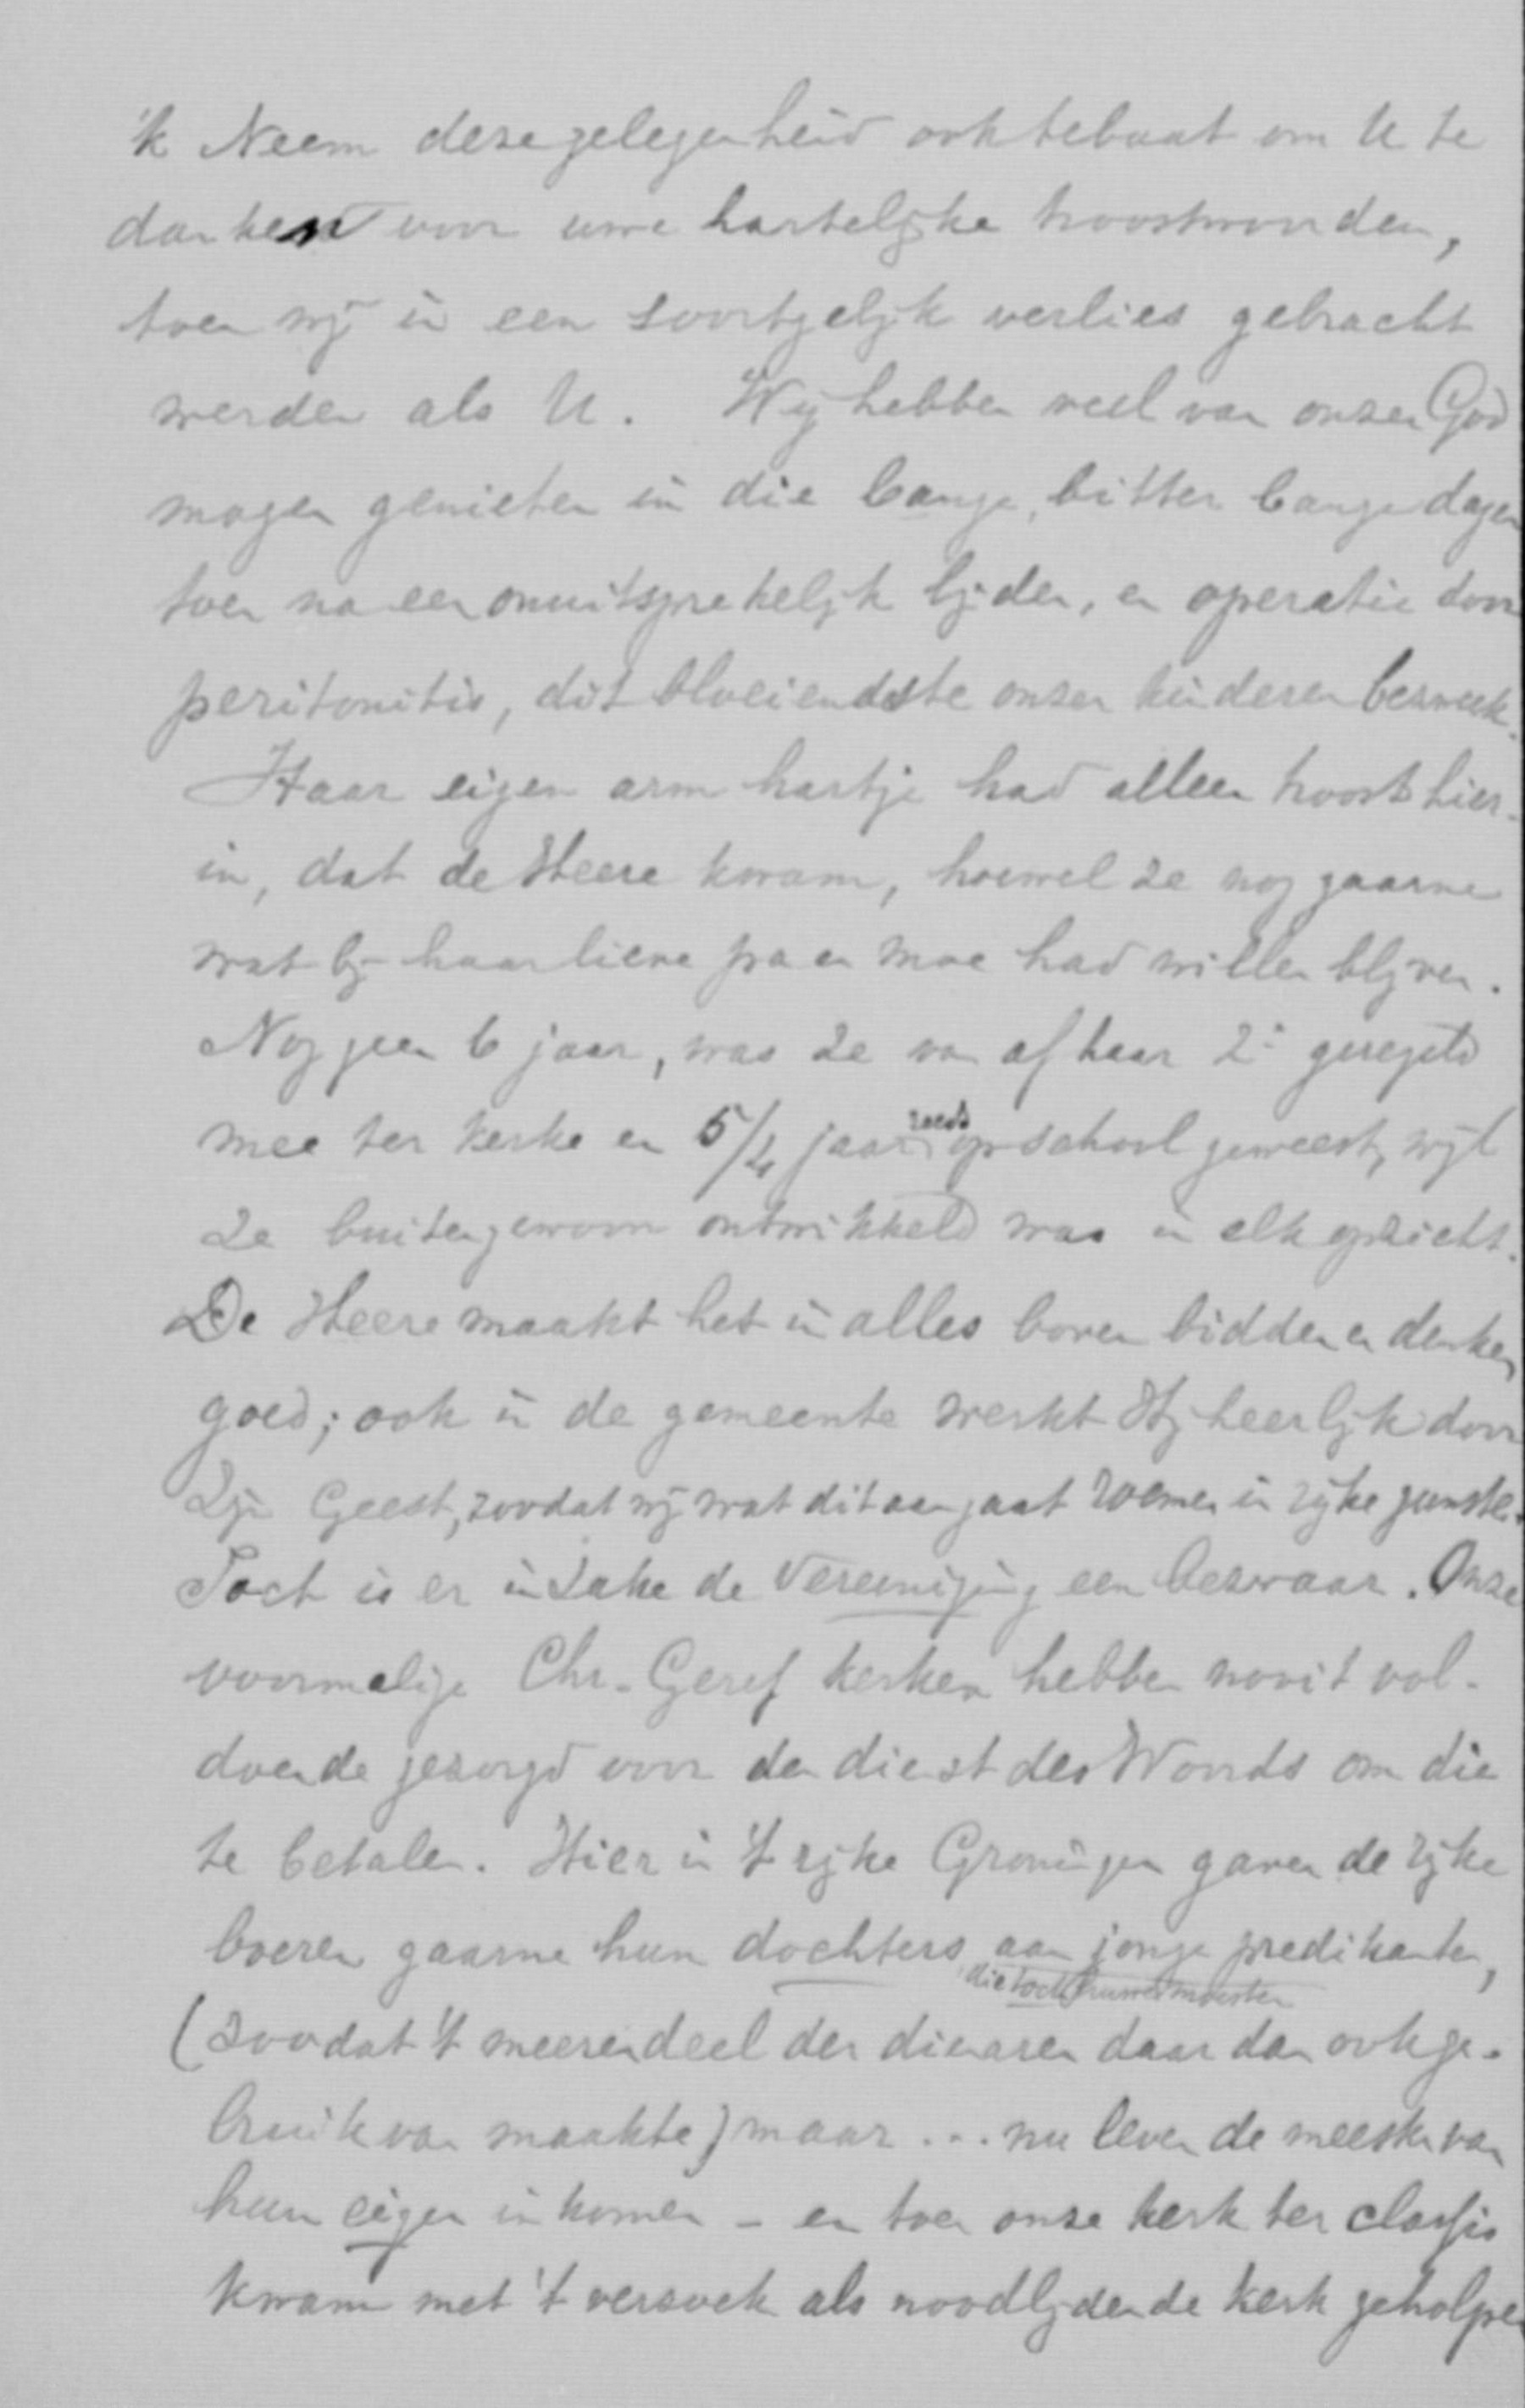 'k Neem deze gelegenheid ook te baat om U te
danken voor uwe hartelijke troostwoorden,
toen wij in een soortgelijk verlies gebracht
werden als U. Wij hebben veel van onzen God
mogen genieten in die bange, bitter bange dagen
toen na een onuitsprekelijk lijden, en operatie door
peritonitis, dit bloeiendste onzer kinderen bezweek.
Haar eigen arm hartje had alleen troost hier-
in, dat de Heere kwam, hoewel ze nog gaarne
wat bij haar lieve pa en moe had willen blijven.
Nog geen 6 jaar, was ze van af haar 2e geregeld
mee ter kerke en 5/4 jaar reeds op school geweest, wijl
ze buitengewoon ontwikkeld was in elk opzicht.
De Heere maakt het in alles boven bidden en denken
goed; ook in de gemeente werkt Hij heerlijk door
Zijn Geest, zoodat wij wat dit aangaat roemen in rijke gunsten.
Toch is er inzake de Vereeniging een bezwaar. Onze
voormalige Chr. Geref kerken hebben nooit vol-
doende gezorgd voor den dienst des Woords om die
te betalen. Hier in 't rijke Groningen gaven de rijke
boeren gaarne hun dochters aan jonge predikanten,
die toch huwen moesten
(zoodat 't meerendeel der dienaren daar dan ook ge-
bruik van maakte) maar ... nu leven de meesten van
hun eigen inkomen - en toen onze kerk ter classis
kwam met 't verzoek als noodlijdende kerk geholpen